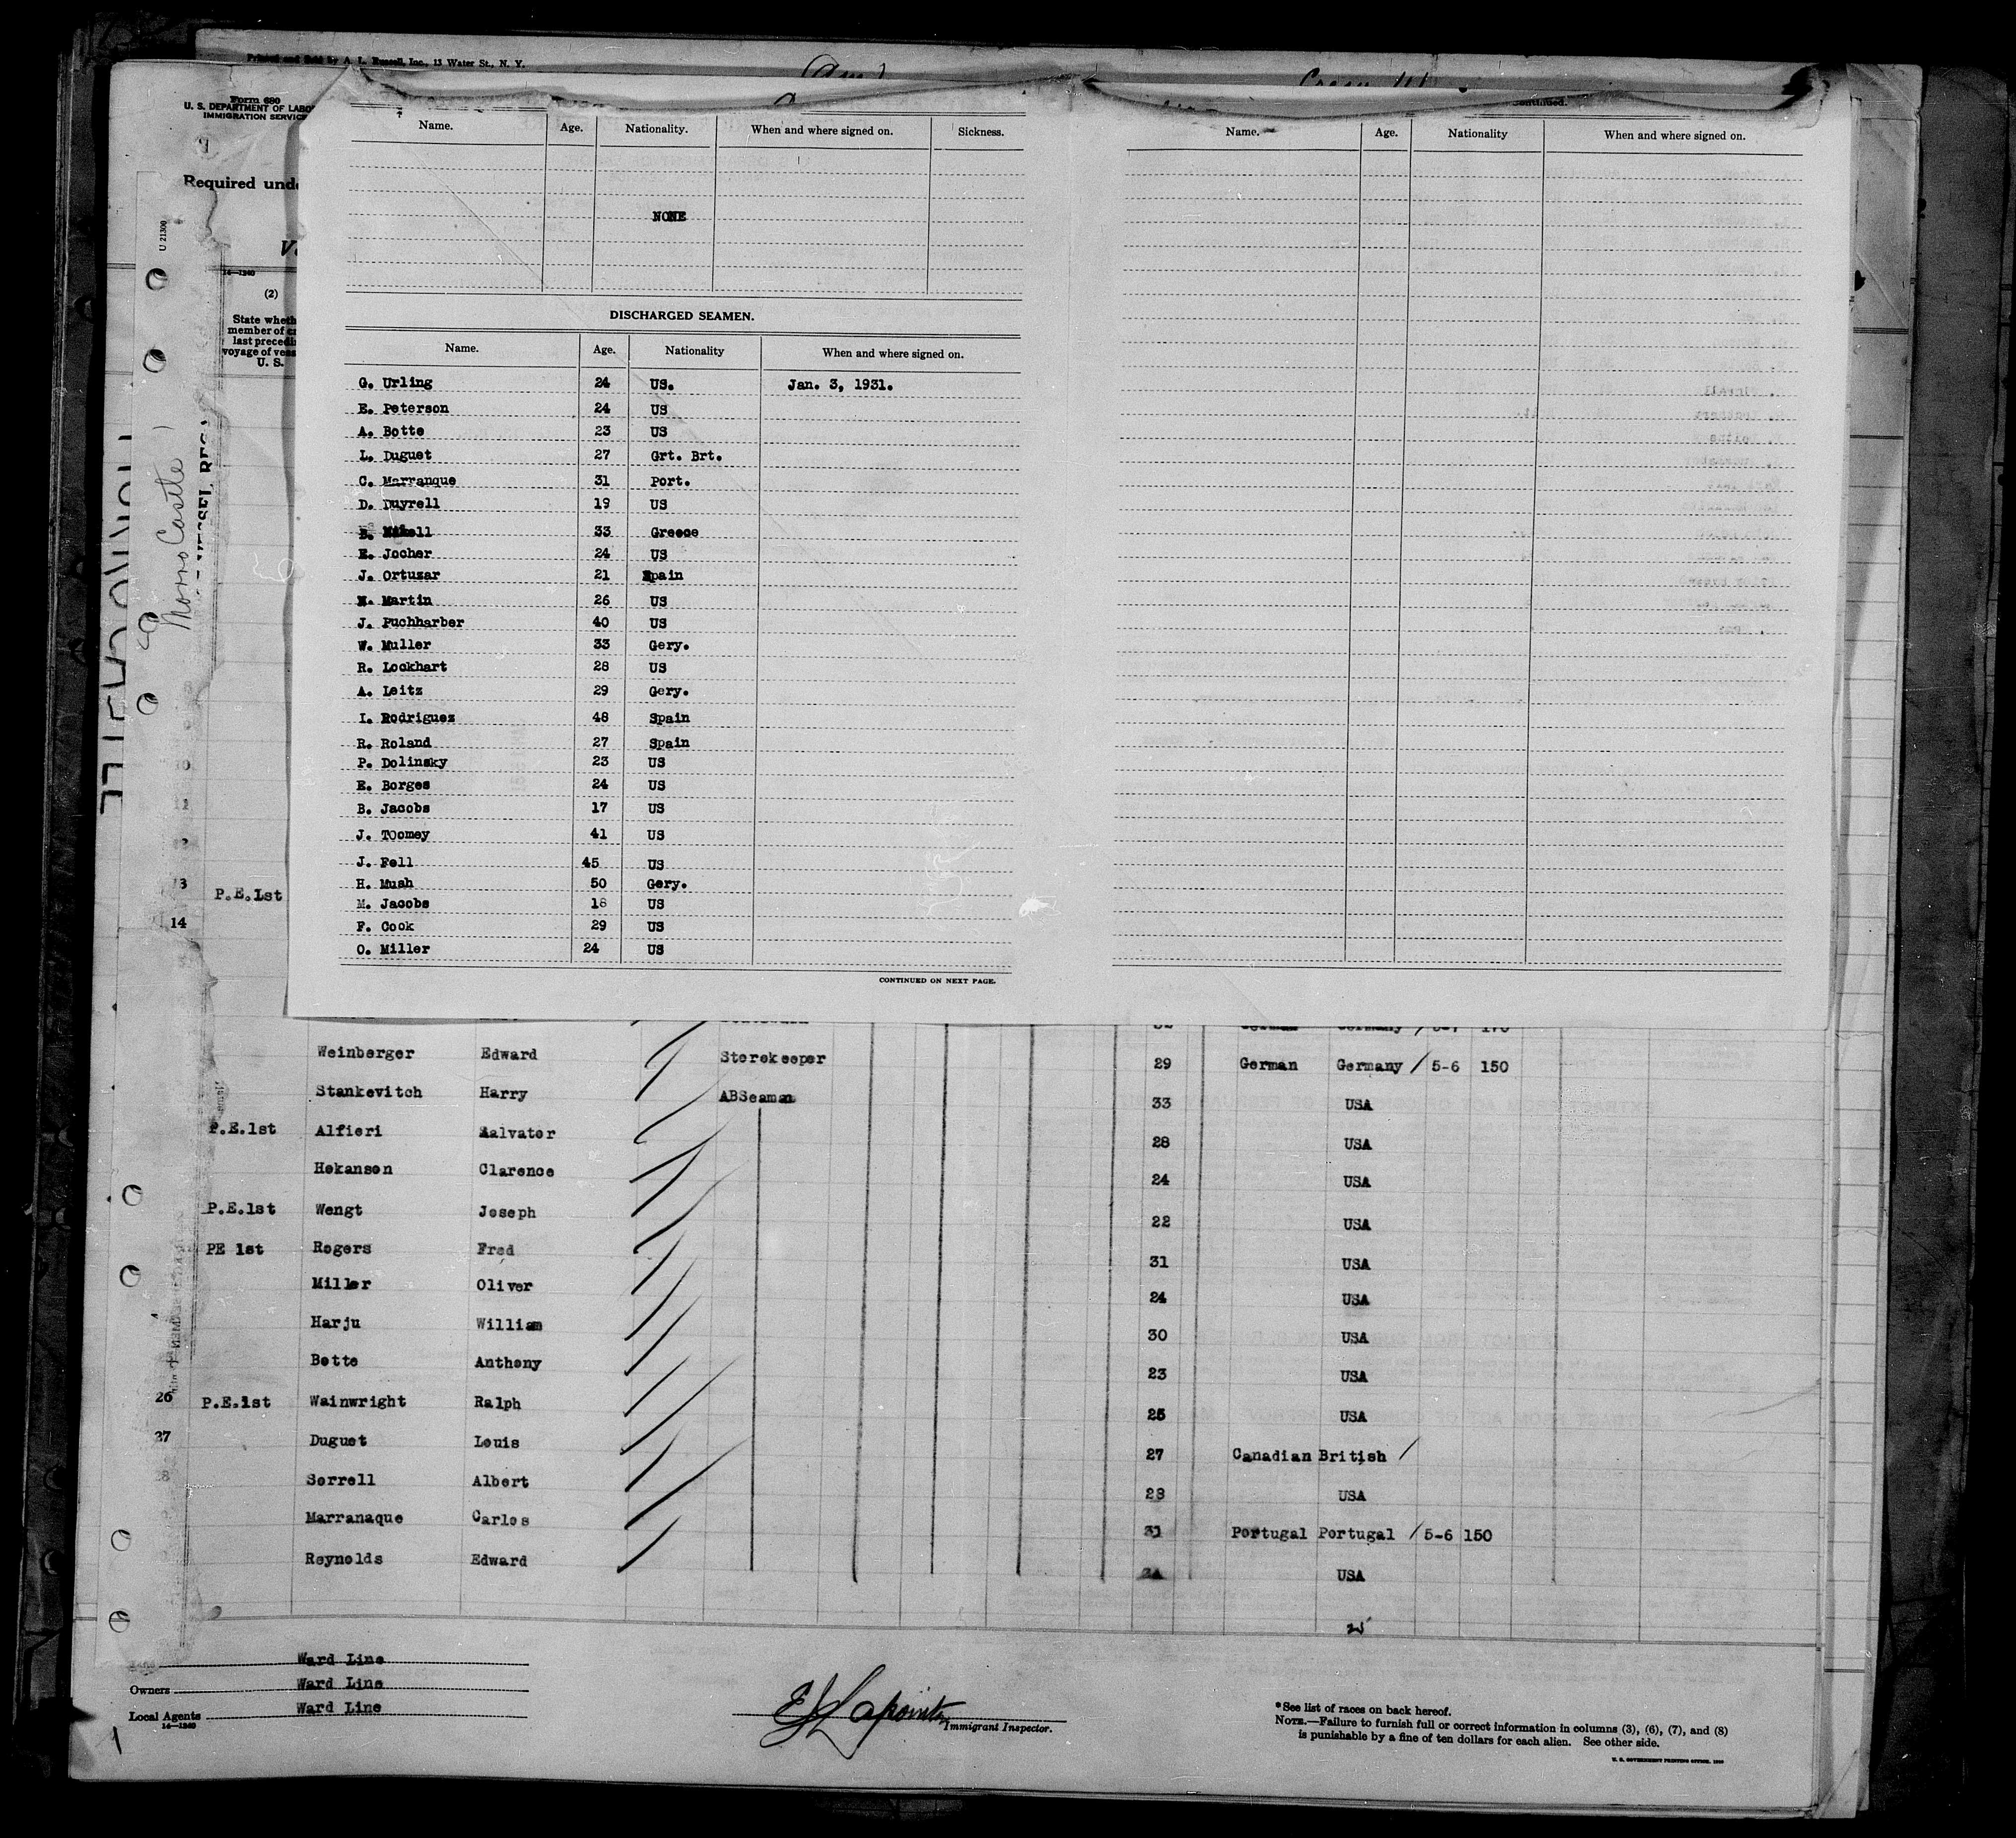 Printed and Sold by A. L. Russell, Inc., 13 Water St., N. Y.
Form 680
U. S. DEPARTMENT OF LABO
IMMIGRATION SERVICE
Required unde
U 21300
Morro Castle
14—1240
(2)
State wheth
member of c
last precedi
voyage of ves
U. S.
Continued.
Name. Age. Nationality. When and where signed on. Sickness.
NONE
Name. Age. Nationality When and where signed on.
DISCHARGED SEAMEN.
Name. Age. Nationality When and where signed on.
G. Urling 24 US. Jan. 3, 1931.
E. Peterson 24 US
A. Botte 23 US
L. Duguet 27 Grt. Brt.
C. Marranque 31 Port.
D. Duyrell 19 US
33 Greece
E. Jocher 24 US
J. Ortuzar 21 Spain
N. Martin 26 US
J. Puchharber 40 US
W. Muller 33 Gery.
R. Lockhart 28 US
A. Leitz 29 Gery.
I. Rodriguez 48 Spain
R. Roland 27 Spain
P. Dolinsky 23 US
E. Borges 24 US
B. Jacobs 17 US
J. TOomey 41 US
J. Fell 45 US
H. Mush 50 Gery.
M. Jacobs 18 US
F. Cook 29 US
O. Miller 24 US
CONTINUED ON NEXT PAGE.
13 P.E.1st
14
Weinberger Edward Storekeeper 29 German Germany / 5-6 150
Stankevitch Harry ABSeaman 33 USA
P.E.1st Alfieri Salvator 28 USA
Hokanson Clarence 24 USA
P.E.1st Wengt Joseph 22 USA
PE 1st Rogers Fred 31 USA
Miller Oliver 24 USA
Harju William 30 USA
Botte Anthony 23 USA
26 P.E.1st Wainwright Ralph 25 USA
27 Duguet Louis 27 Canadian British /
28 Sorrell Albert 28 USA
Marranaque Carlos 31 Portugal Portugal / 5-6 150
Reynolds Edward 24 USA
Ward Line
Owners Ward Line
Local Agents Ward Line
14—1240
E Lapointe
Immigrant Inspector.
*See list of races on back hereof.
NOTE.—Failure to furnish full or correct information in columns (3), (6), (7), and (8)
is punishable by a fine of ten dollars for each alien. See other side.
U. S. GOVERNMENT PRINTING OFFICE: 1930